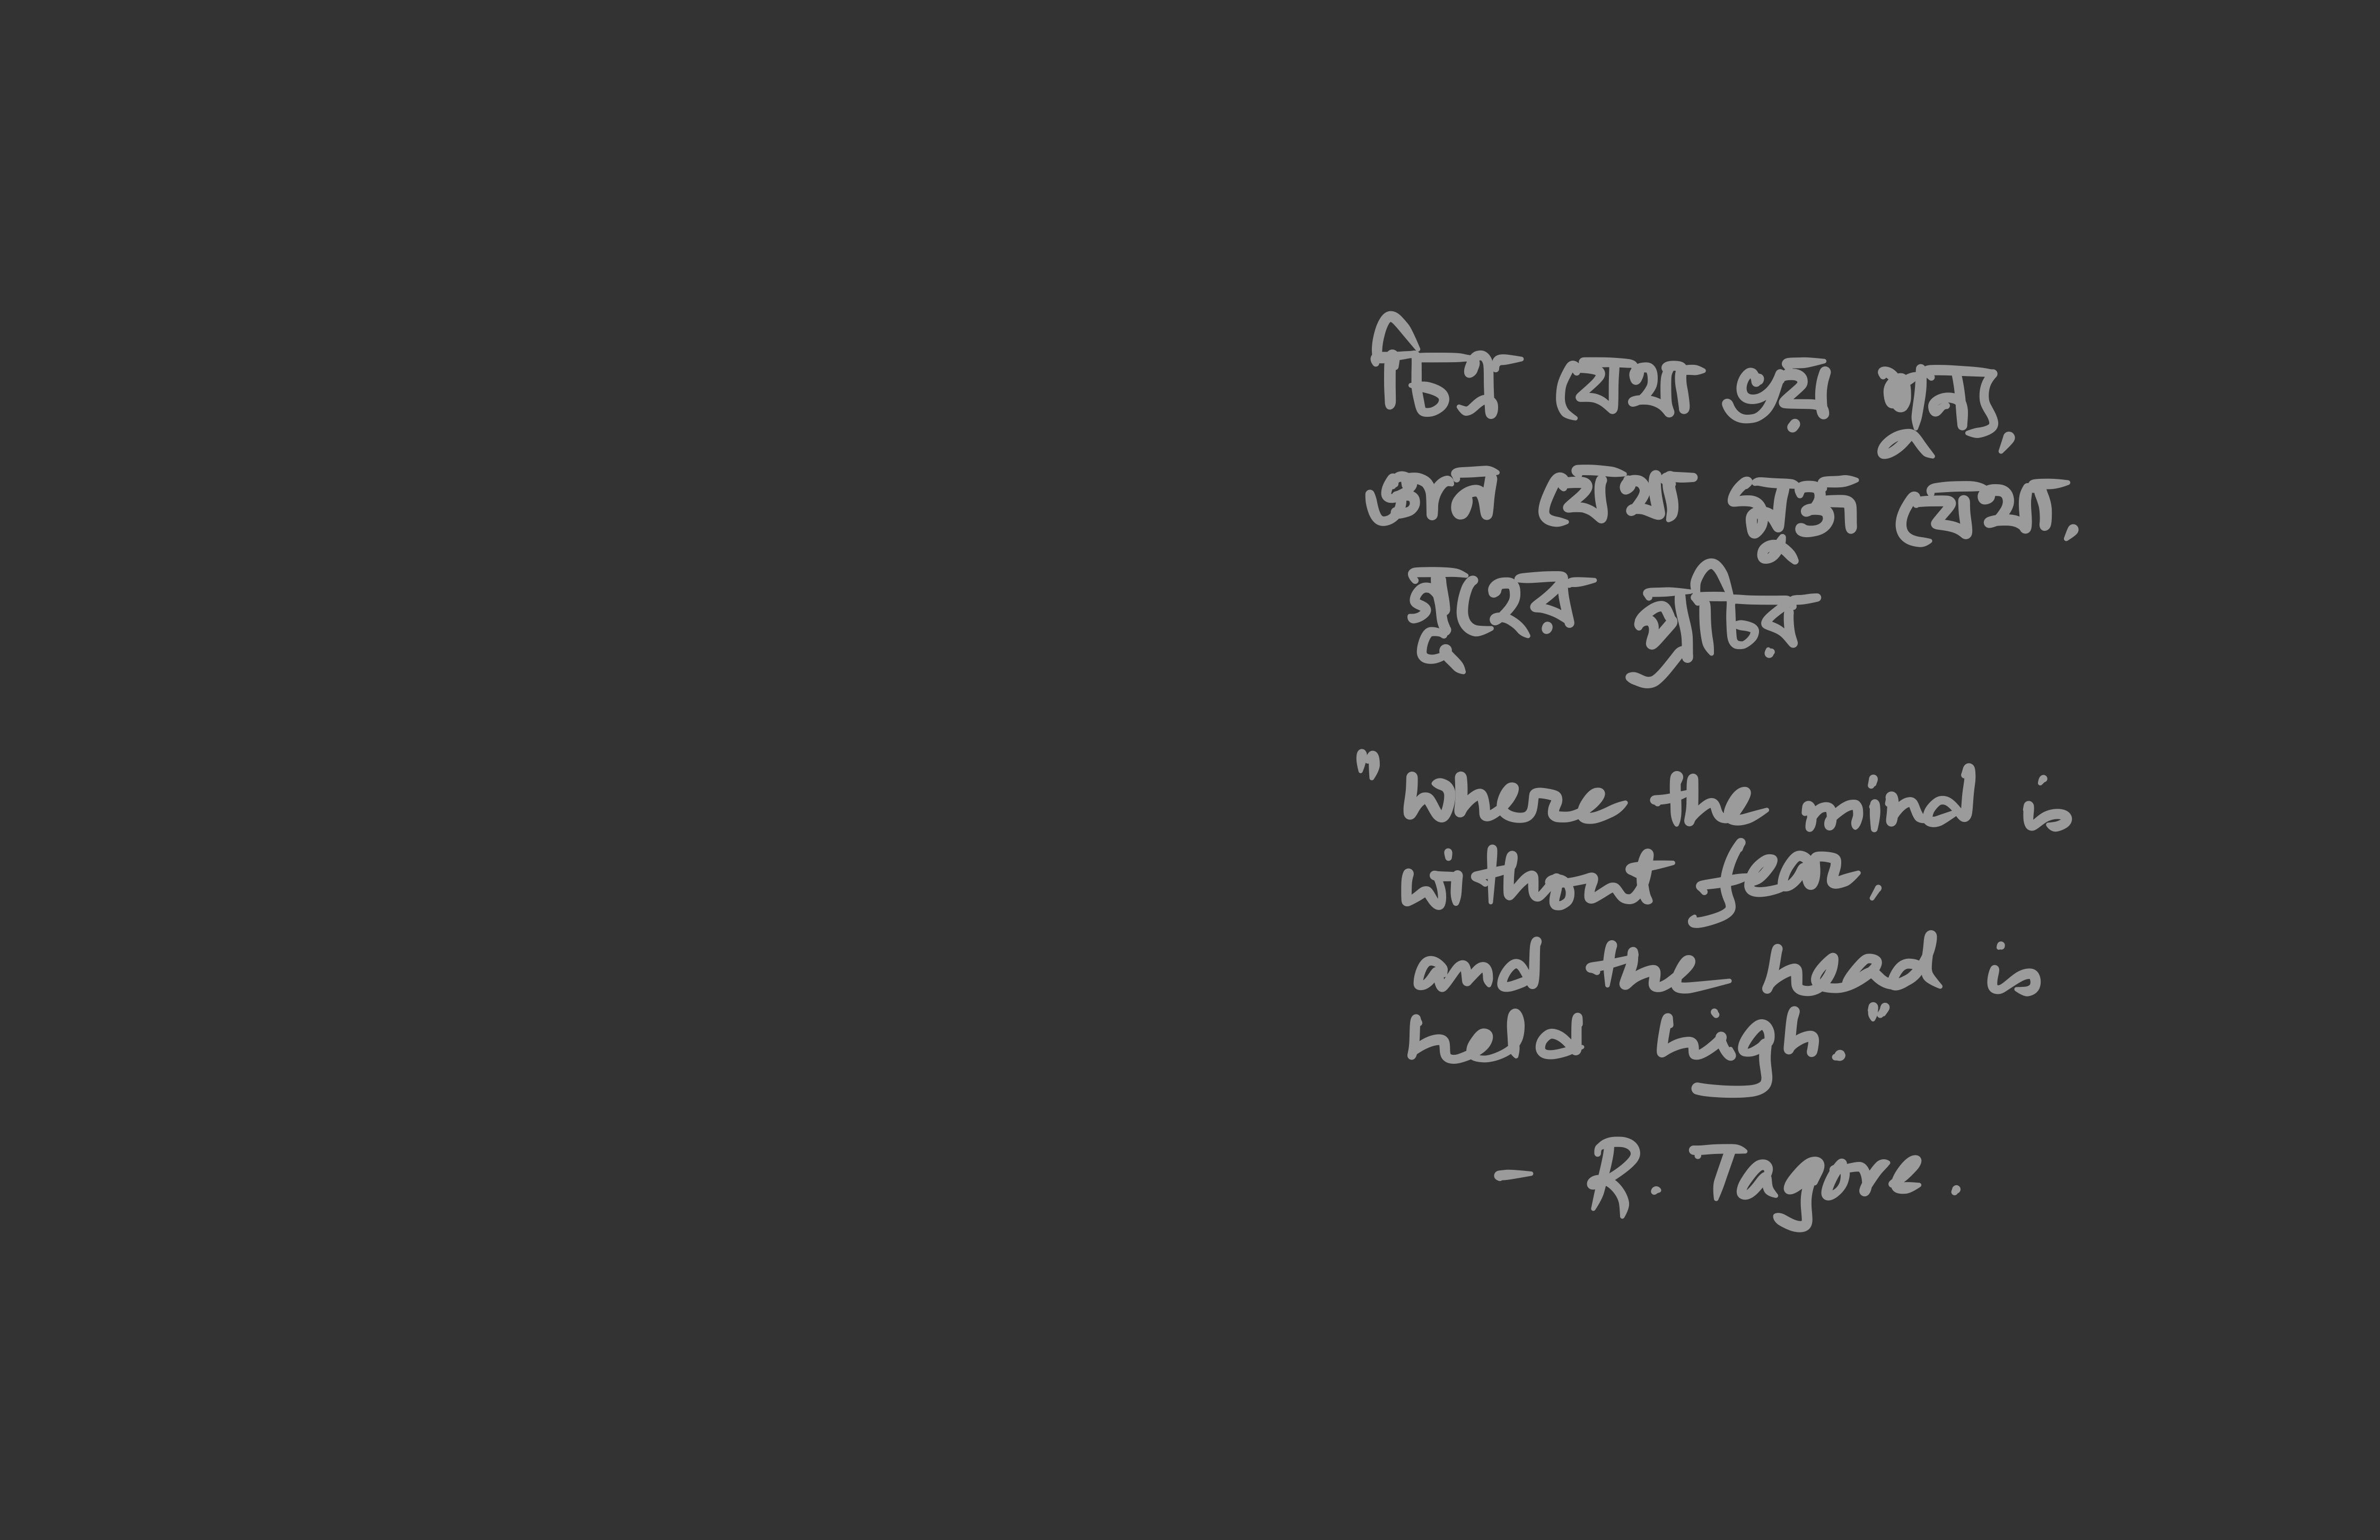 চিত্ত যেথা ভয় শূন্য,
জ্ঞান যেথা মুক্ত যেথা,
গৃহের প্রচির
"Where the mind is
without fear,
and the head is
held high."
- R. Tagore.